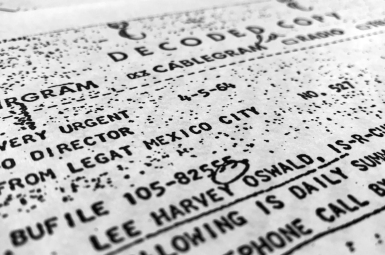 DECODED COPY
CABLEGRAM RADIO
URGRAM
VERY URGENT 4-5-64
O DIRECTOR
FROM LEGAT MEXICO CITY NO. 527
BUFILE 105-82555
LEE HARVEY OSWALD, IS-R-C
OLLOWING IS DAILY SUMM
EPHONE CALL B